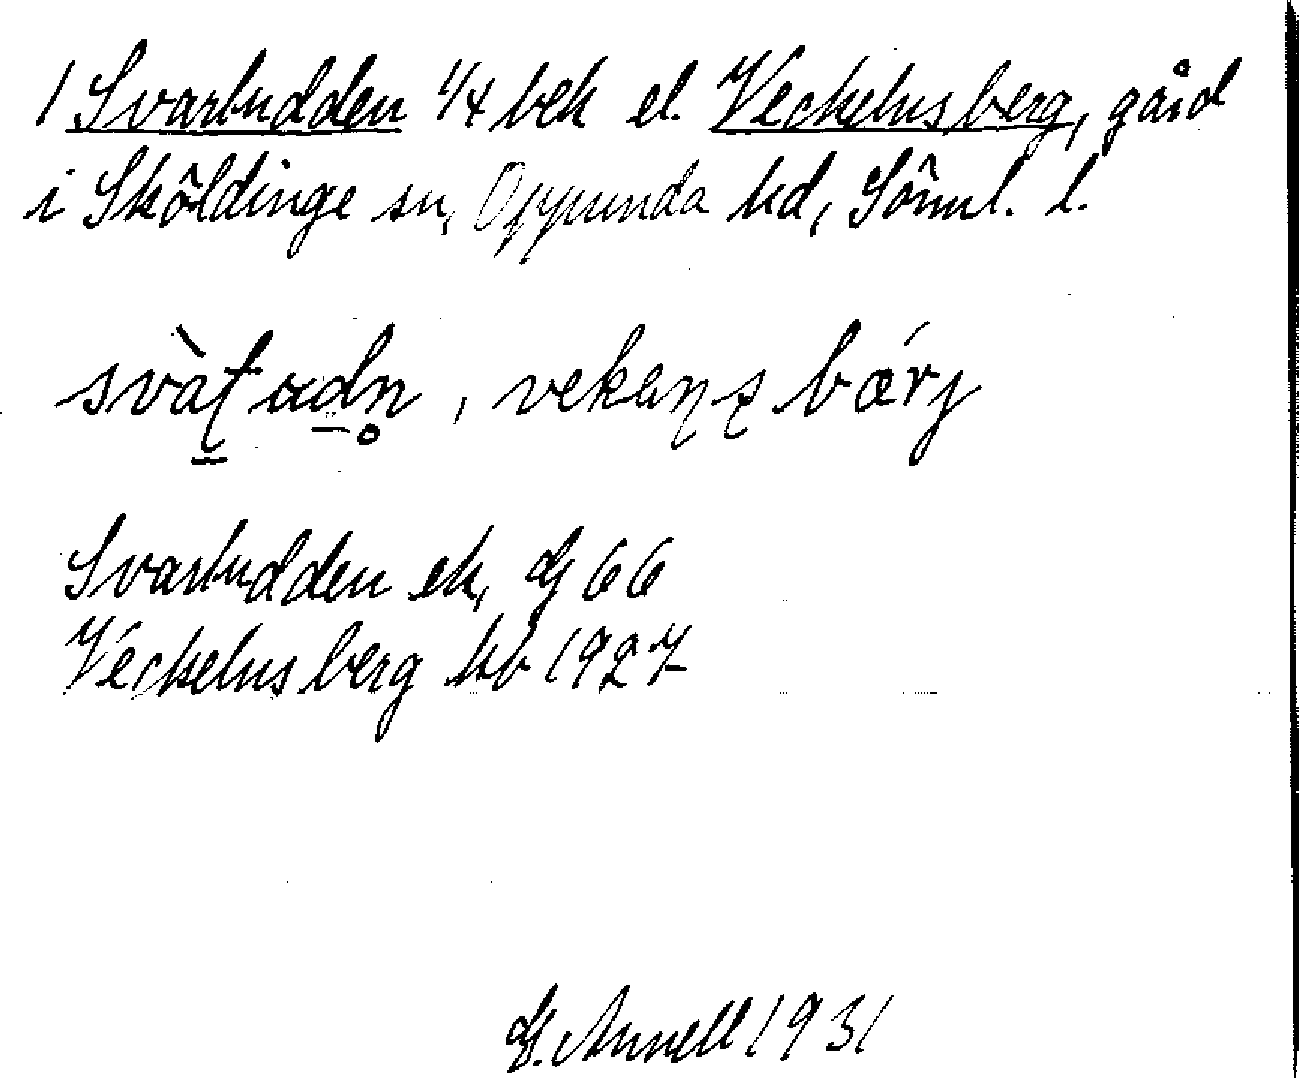 1 Svartudden 1/4 bek el. Veckelnsberg, gård
i Sköldinge sn, Oppunda hd, Söml. l.
Svartudden ek, Gj 66
Veckelnsberg kb 1927
G. Annell 1931